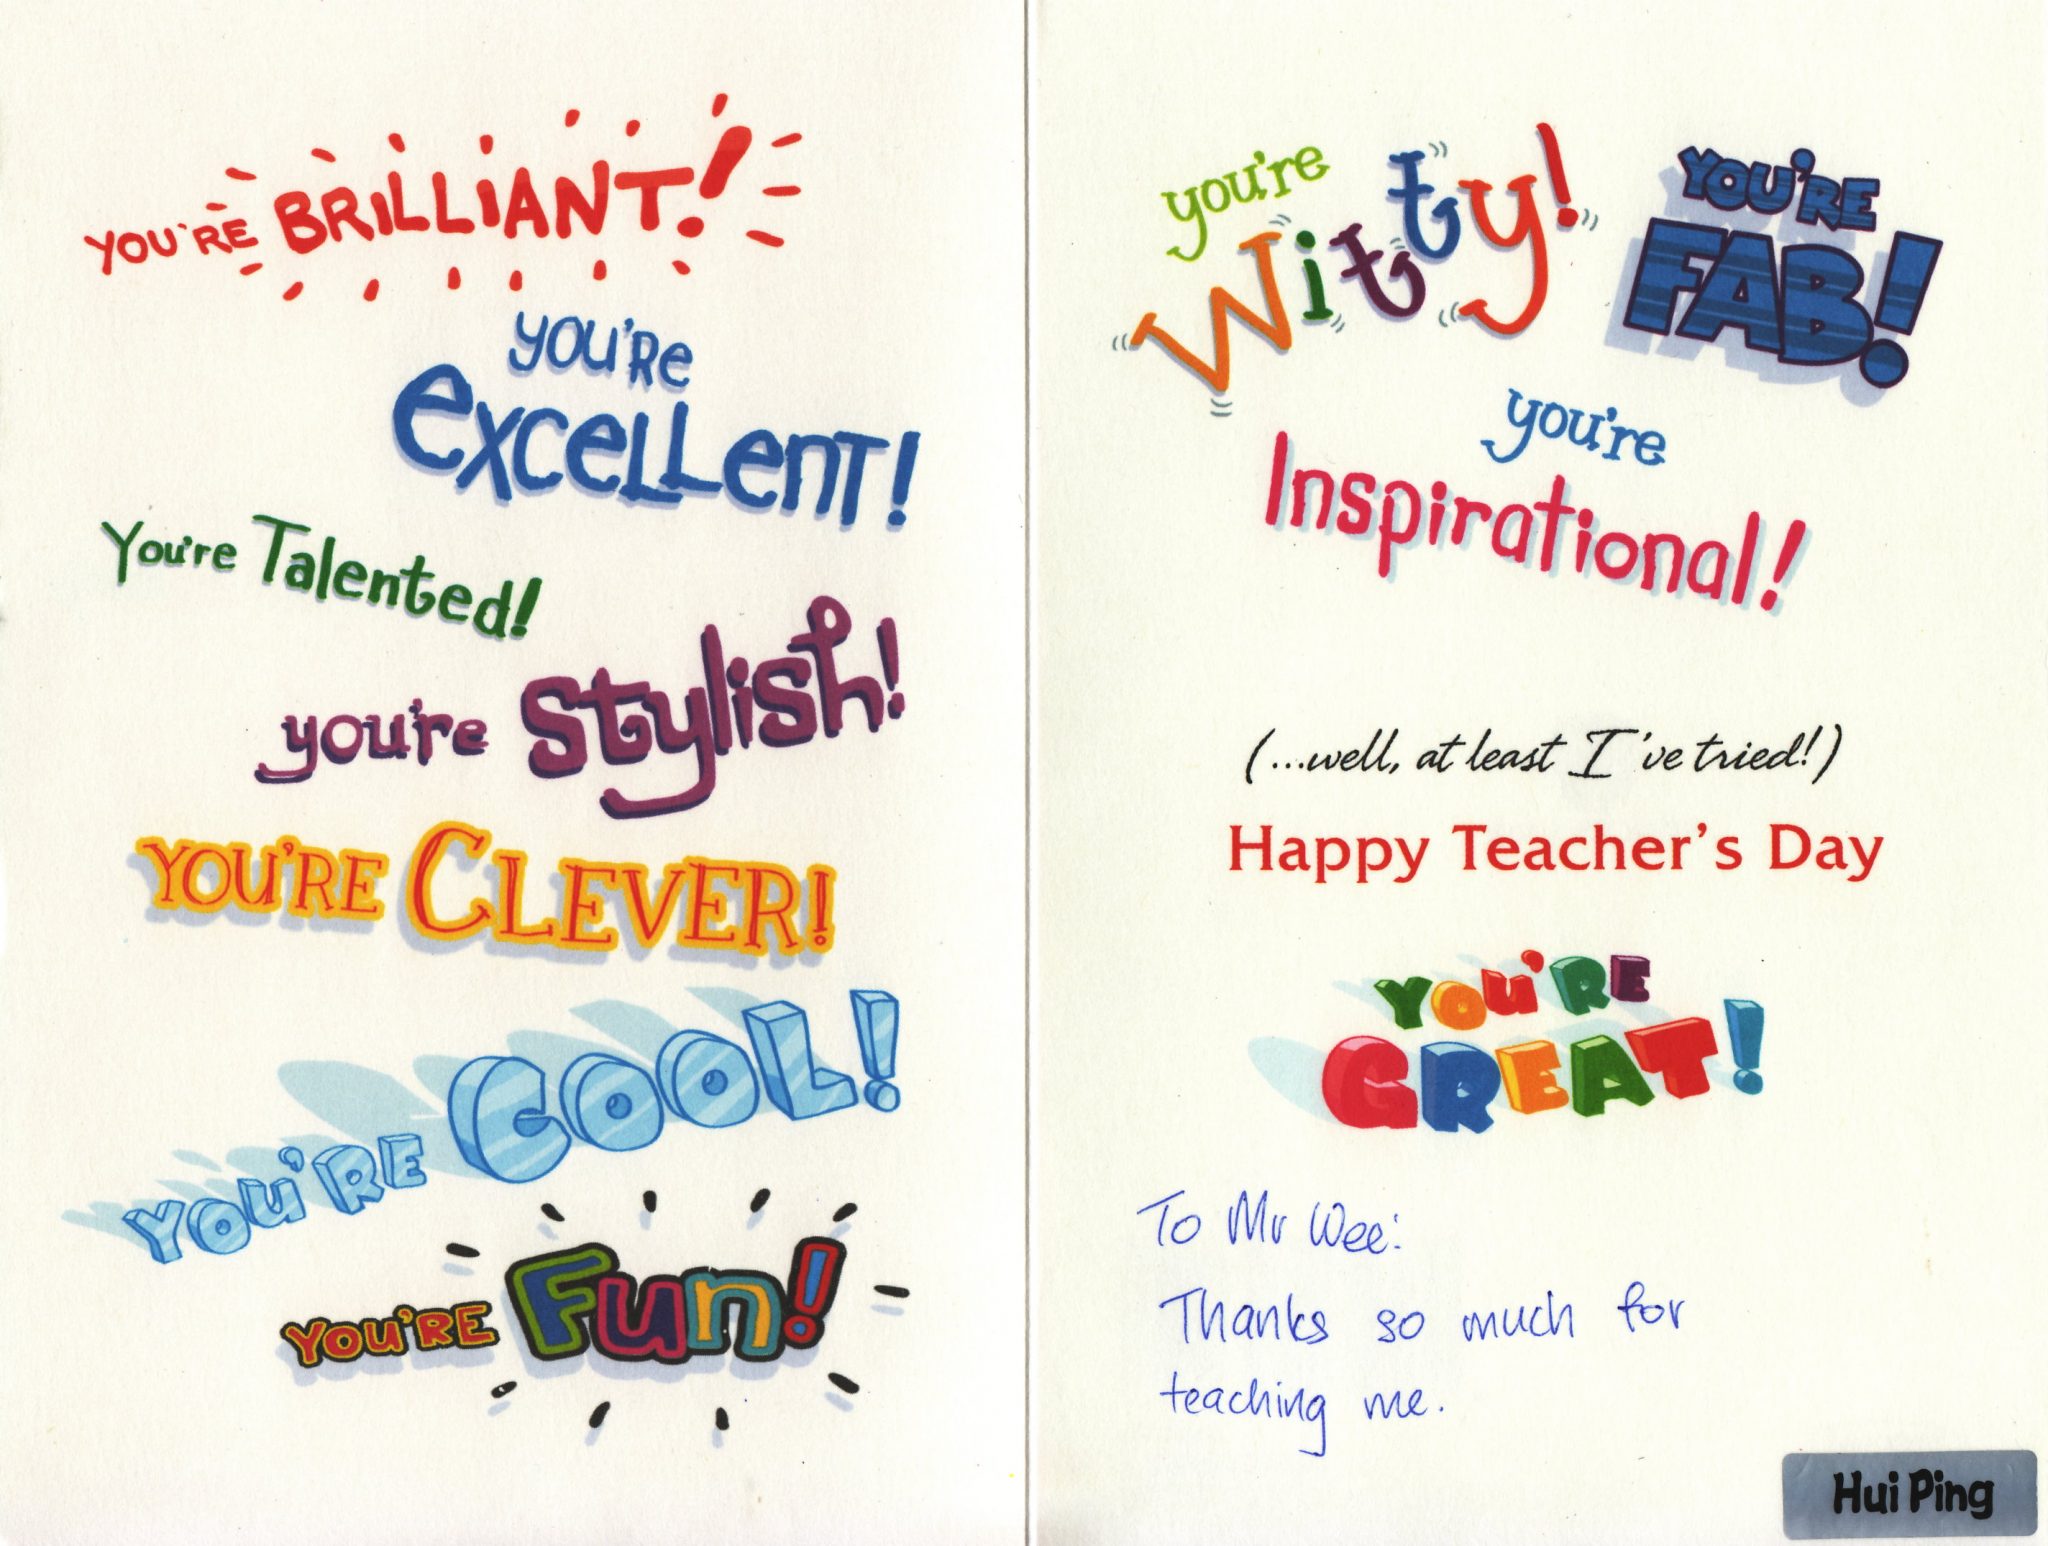 YOU'RE BRILLIANT!
you're
excellent!
You're Talented!
you're stylish!
YOU'RE CLEVER!
YOU'RE COOL!
YOU'RE Fun!
you're
Witty!
YOU'RE
FAB!
you're
Inspirational!
(...well, at least I've tried!)
Happy Teacher's Day
YOU'RE
GREAT!
To Mr Wee:
Thanks so much for
teaching me.
Hui Ping